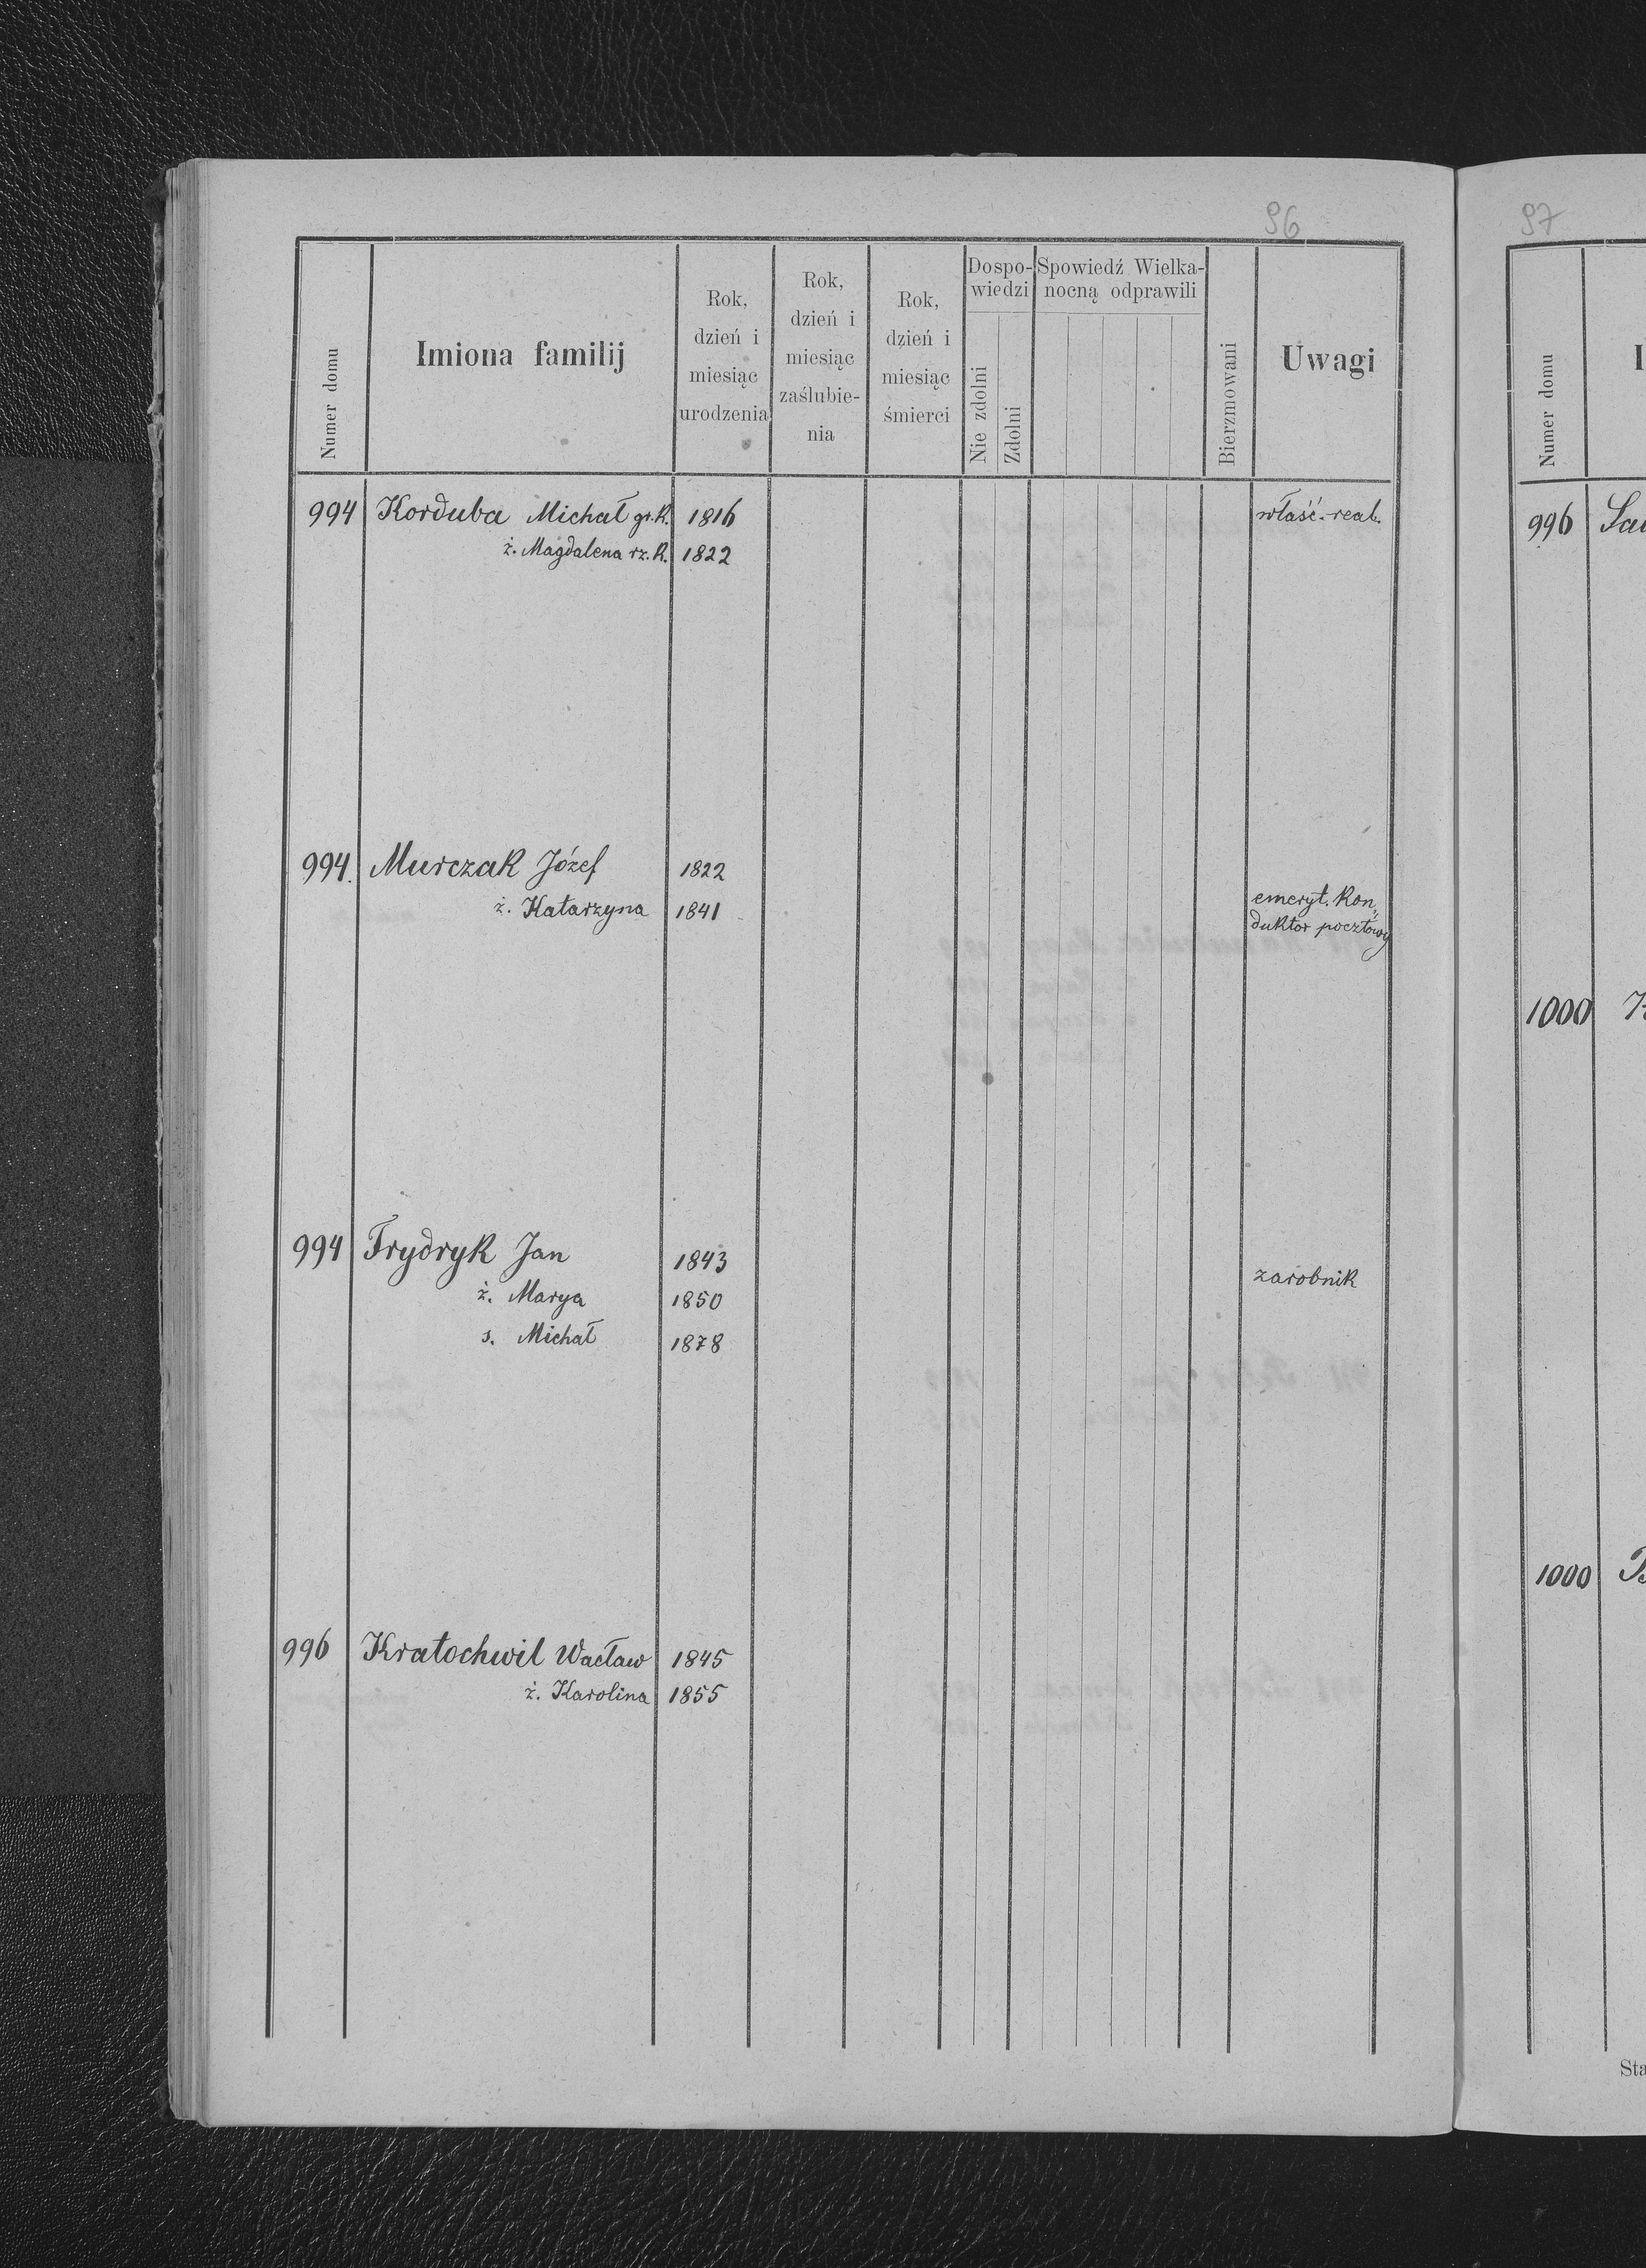 96
Numer domu
Imiona familij
Rok,
dzień i
miesiąc
urodzenia
Rok,
dzień i
miesiąc
zaślubie-
nia
Rok,
dzień i
miesiąc
śmierci
Dospo-
wiedzi
Nie zdolni
Zdolni
Spowiedź Wielka-
nocną odprawili
Bierzmowani
Uwagi
994 Korduba Michał gr.k. 1816 właść. real.
ż. Magdalena rz.k. 1822
994. Murczak Józef 1822
ż. Katarzyna 1841
emeryt. kon„
duktor pocztowy
994 Frydryk Jan 1843
zarobnik
ż. Marya 1850
s. Michał 1878
996 Kratochwil Wacław 1845
ż. Karolina 1855
97
Numer domu
I
996
1000
1000
Sta